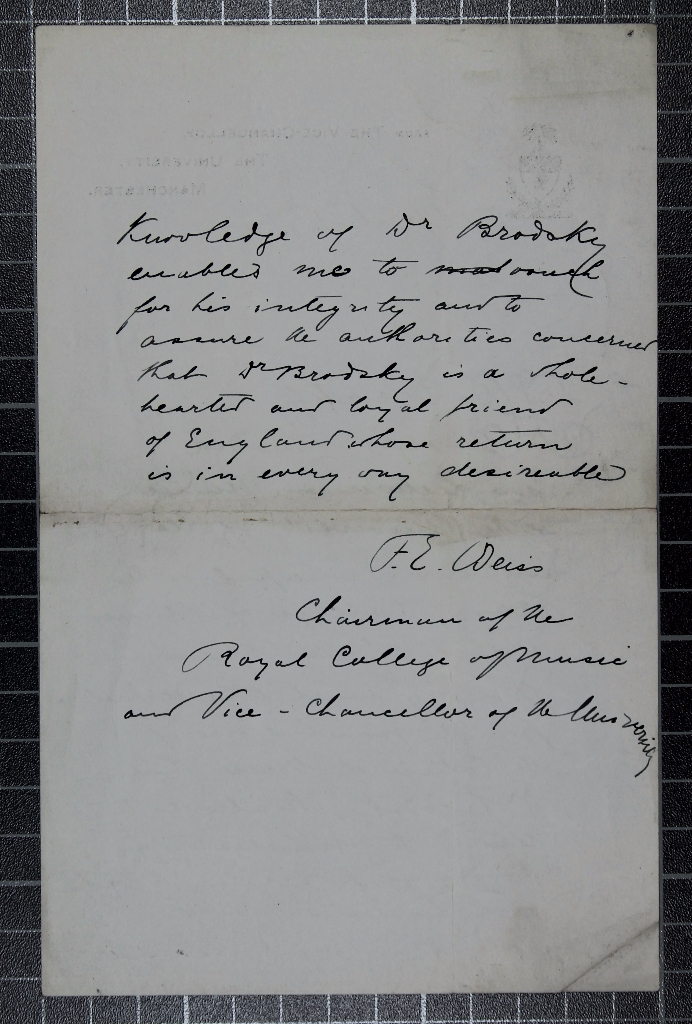 Knowledge of Dr Brodsky
enables me to vouch
for his integrity and to
assure the authorities concerned
that Dr Brodsky is a whole-
hearted and loyal friend
of England whose return
is in every way desireable
F. E. Weiss
Chairman of the
Royal College of Music
and Vice-Chancellor of the University